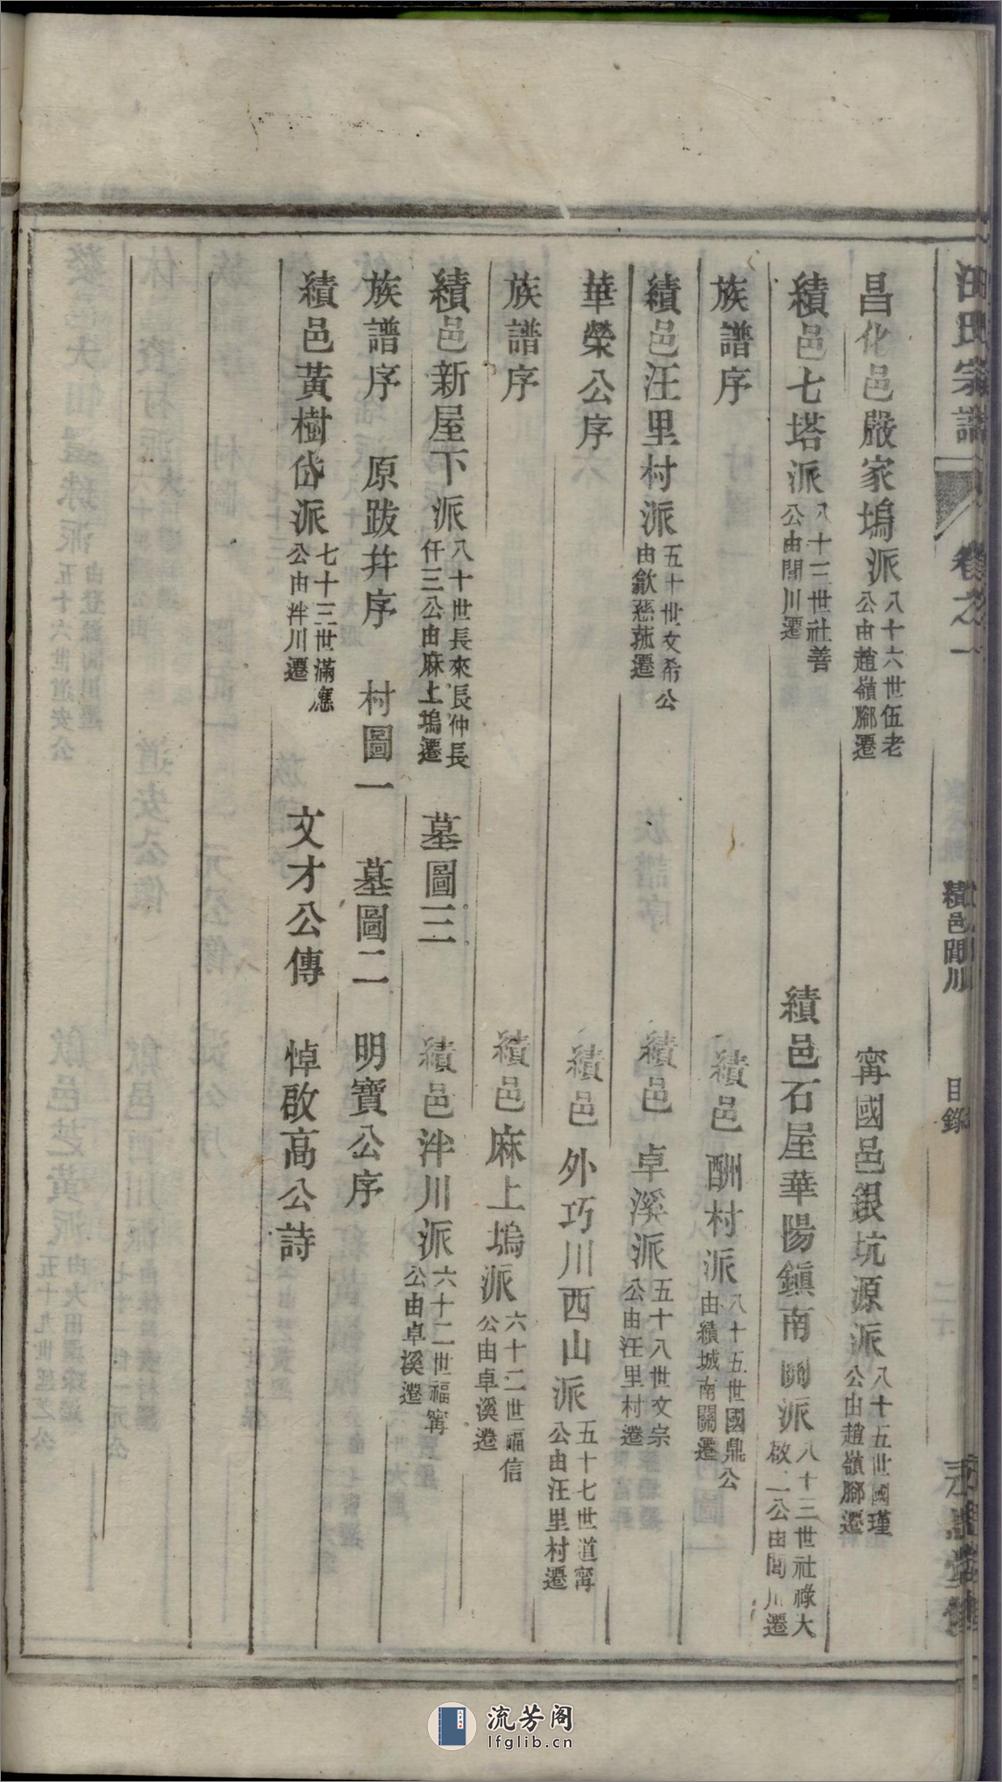 氏宗譜 卷之一 績邑閏川 目錄
昌化邑嚴家塢派 八十六世伍老公由趙嶺腳遷 甯國邑銀坑源派 八十五世國瑾公由趙嶺腳遷
績邑七塔派 八十三世社善公由閏川遷 績邑石屋華陽鎮南關派 八十三世社祿大啟二公由閏川遷
族譜序 績邑酬村派 八十五世國鼎公由績城南關遷
績邑汪里村派 五十世文希公由歙慈菰遷 績邑卓溪派 五十八世文宗公由汪里村遷
華榮公序 績邑外巧川西山派 五十七世道甯公由汪里村遷
族譜序 績邑麻上塢派 六十二世福信公由卓溪遷
績邑新屋下派 八十世長來長仲長仟三公由麻上塢遷 墓圖三 績邑泮川派 六十二世福甯公由卓溪遷
族譜序 原跋并序 村圖一 墓圖二 明寶公序
績邑黃樹岱派 七十三世滿應公由泮川遷 文才公傳 悼啟高公詩
流芳阁
lfglib.cn